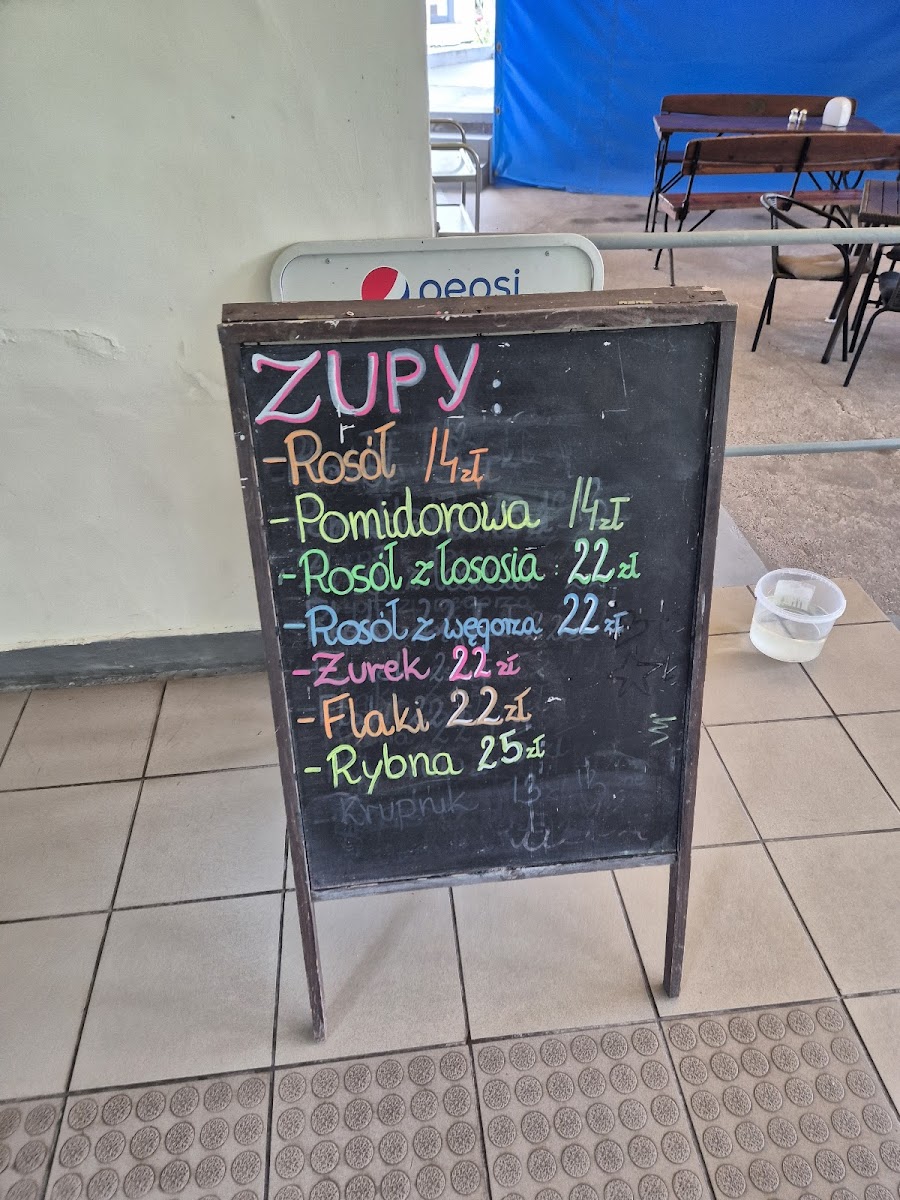 pepsi
ZUPY:
-Rosół 14zł
-Pomidorowa 14zł
-Rosół z łososia 22zł
-Rosół z węgorza 22zł
-Żurek 22zł
-Flaki 22zł
-Rybna 25zł
Krupnik 13